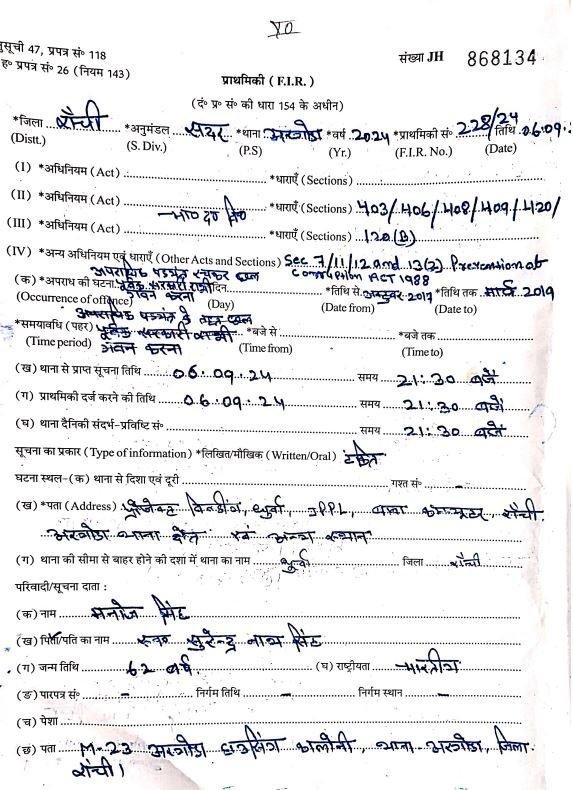 नुसूची 47, प्रपत्र सं० 118
ह० प्रपत्र सं० 26 (नियम 143)
संख्या JH 868134
प्राथमिकी ( F.I.R. )
(दं० प्र० सं० की धारा 154 के अधीन)
*जिला राँची *अनुमंडल सदर *थाना अरगोड़ा *वर्ष 2024 *प्राथमिकी सं० 228/24 तिथि 06.09.
(Distt.) (S. Div.) (P.S) (Yr.) (F.I.R. No.) (Date)
(I) *अधिनियम (Act) *धाराएँ (Sections)
(II) *अधिनियम (Act) भा० द० वि० *धाराएँ (Sections) 403/406/408/409/420/
(III) *अधिनियम (Act) *धाराएँ (Sections) 120(B)
(IV) *अन्य अधिनियम एवं धाराएँ (Other Acts and Sections) Sec 7/11/12 and 13(2) Prevention of
Corruption ACT 1988
(क) *अपराध की घटना दिन *तिथि से अक्टूबर 2017 *तिथि तक मार्च 2019
(Occurrence of offence) (Day) (Date from) (Date to)
*समयावधि (पहर) *बजे से *बजे तक
(Time period) गबन करना (Time from) (Time to)
(ख) थाना से प्राप्त सूचना तिथि 06.09.24 समय 21:30 बजे
(ग) प्राथमिकी दर्ज करने की तिथि 06.09.24 समय 21:30 बजे
(घ) थाना दैनिकी संदर्भ-प्रविष्टि सं० समय 21:30 बजे
सूचना का प्रकार (Type of information) *लिखित/मौखिक (Written/Oral) टंकित
घटना स्थल-(क) थाना से दिशा एवं दूरी गश्त सं० -
(ख) *पता (Address) प्रोजेक्ट बिल्डींग, धुर्वा, JPPL, बाबा कम्प्यूटर, राँची
अरगोड़ा थाना क्षेत्र एवं अन्य स्थान
(ग) थाना की सीमा से बाहर होने की दशा में थाना का नाम धुर्वा जिला राँची
परिवादी/सूचना दाता :
(क) नाम मनोज सिंह
(ख) पिता/पति का नाम स्व० सुरेन्द्र नाथ सिंह
(ग) जन्म तिथि 62 वर्ष (घ) राष्ट्रीयता भारतीय
(ङ) पारपत्र सं० - निर्गम तिथि - निर्गम स्थान -
(च) पेशा
(छ) पता M-23 अरगोड़ा हाउसिंग कालोनी, थाना-अरगोड़ा, जिला-
राँची।